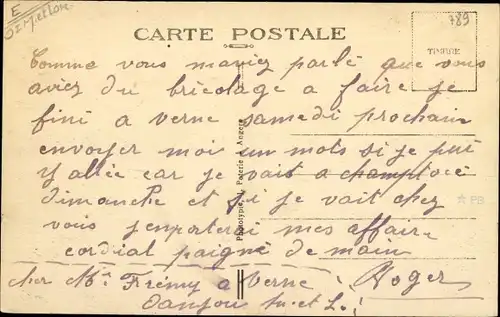 E
D. I. M. et Loire
789
CARTE POSTALE
TIMBRE
Comme vous maviez parlé que vous
aviez du bricolage a faire je
fini a verne samedi prochain
envoyer moi un mots si je puit
y allée car je vait a champtocé
dimanche et si je vait chez
vous jenporterai mes affaire
cordial poigné de main
Roger
cher Mr Frémy a Verne
danjou M. et L.
Phototypie J. Paterie, Angers
PB